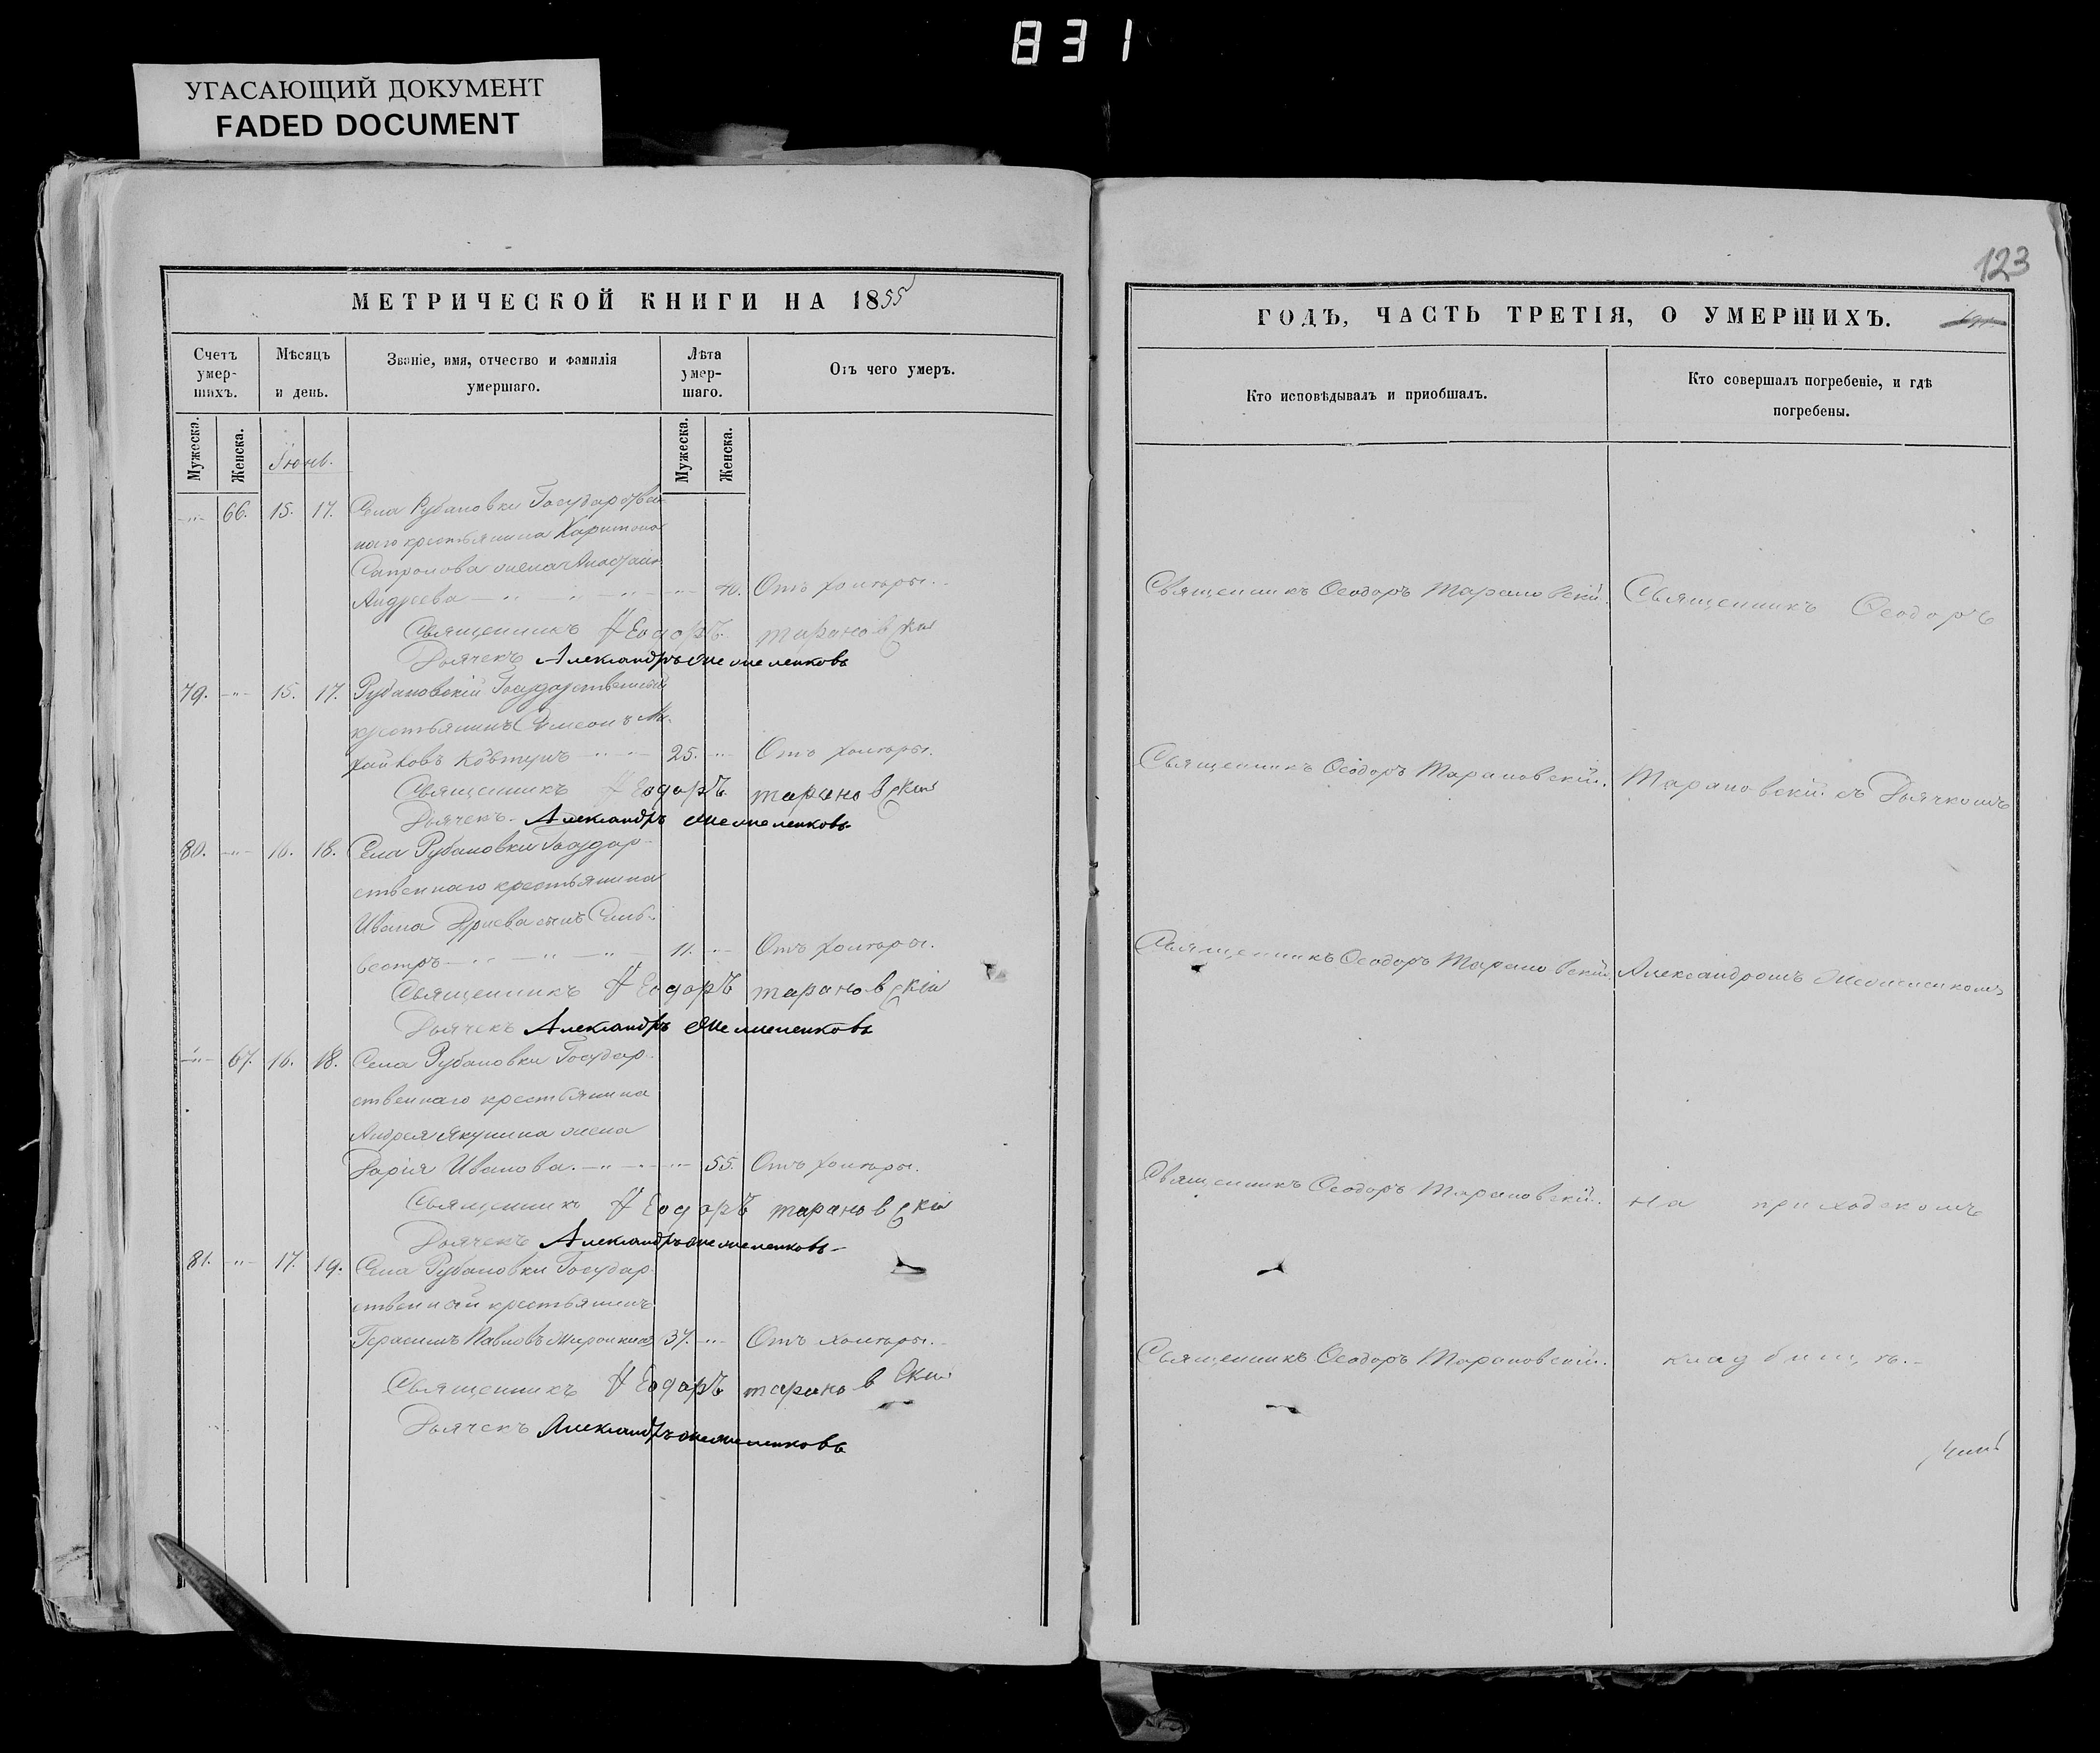 831
УГАСАЮЩИЙ ДОКУМЕНТ
FADED DOCUMENT
МЕТРИЧЕСКОЙ КНИГИ НА 1855
Счетъ умер-шихъ.
Мѣсяцъ и день.
Званіе, имя, отчество и фамилія умершаго.
Лѣта умер-шаго.
Отъ чего умеръ.
Мужеска.
Женска.
Мужеска.
Женска.
Іюнь.
66. 15. 17. Села Рубановки Государствен-
наго крестьянина Харитона
Сапронова жена Анастасія
Андреева 70. Отъ холеры.
Священникъ Ѳеодоръ Тарановскій
Дьячекъ Александръ Омеленковъ
79. 15. 17. Рубановскій Государственный
крестьянинъ Симеонъ Ми-
хайловъ Ковтунъ 25. Отъ холеры.
Священникъ Ѳеодоръ Тарановскій
Дьячекъ Александръ Омеленковъ
80. 16. 18. Села Рубановки Государ-
ственнаго крестьянина
Ивана сынъ Силь-
вестръ 11. Отъ холеры.
Священникъ Ѳеодоръ Тарановскій
Дьячекъ Александръ Омеленковъ
67. 16. 18. Села Рубановки Государ-
ственнаго крестьянина
Андрея Якунина жена
Дарія Иванова. 55. Отъ холеры.
Священникъ Ѳеодоръ Тарановскій
Дьячекъ Александръ Омеленковъ
81. 17. 19. Села Рубановки Государ-
ственный крестьянинъ
Герасимъ Павловъ 37. Отъ холеры.
Священникъ Ѳеодоръ Тарановскій
Дьячекъ Александръ Омеленковъ
123
ГОДЪ, ЧАСТЬ ТРЕТІЯ, О УМЕРШИХЪ.
Кто исповѣдывалъ и пріобщалъ.
Кто совершалъ погребеніе, и гдѣ
погребены.
Священникъ Ѳеодоръ Тарановскій. Священникъ Ѳеодоръ
Священникъ Ѳеодоръ Тарановскій. Тарановскій съ Дьячкомъ
Священникъ Ѳеодоръ Тарановскій. Александромъ
Священникъ Ѳеодоръ Тарановскій. на приходскомъ
Священникъ Ѳеодоръ Тарановскій. кладбищѣ.